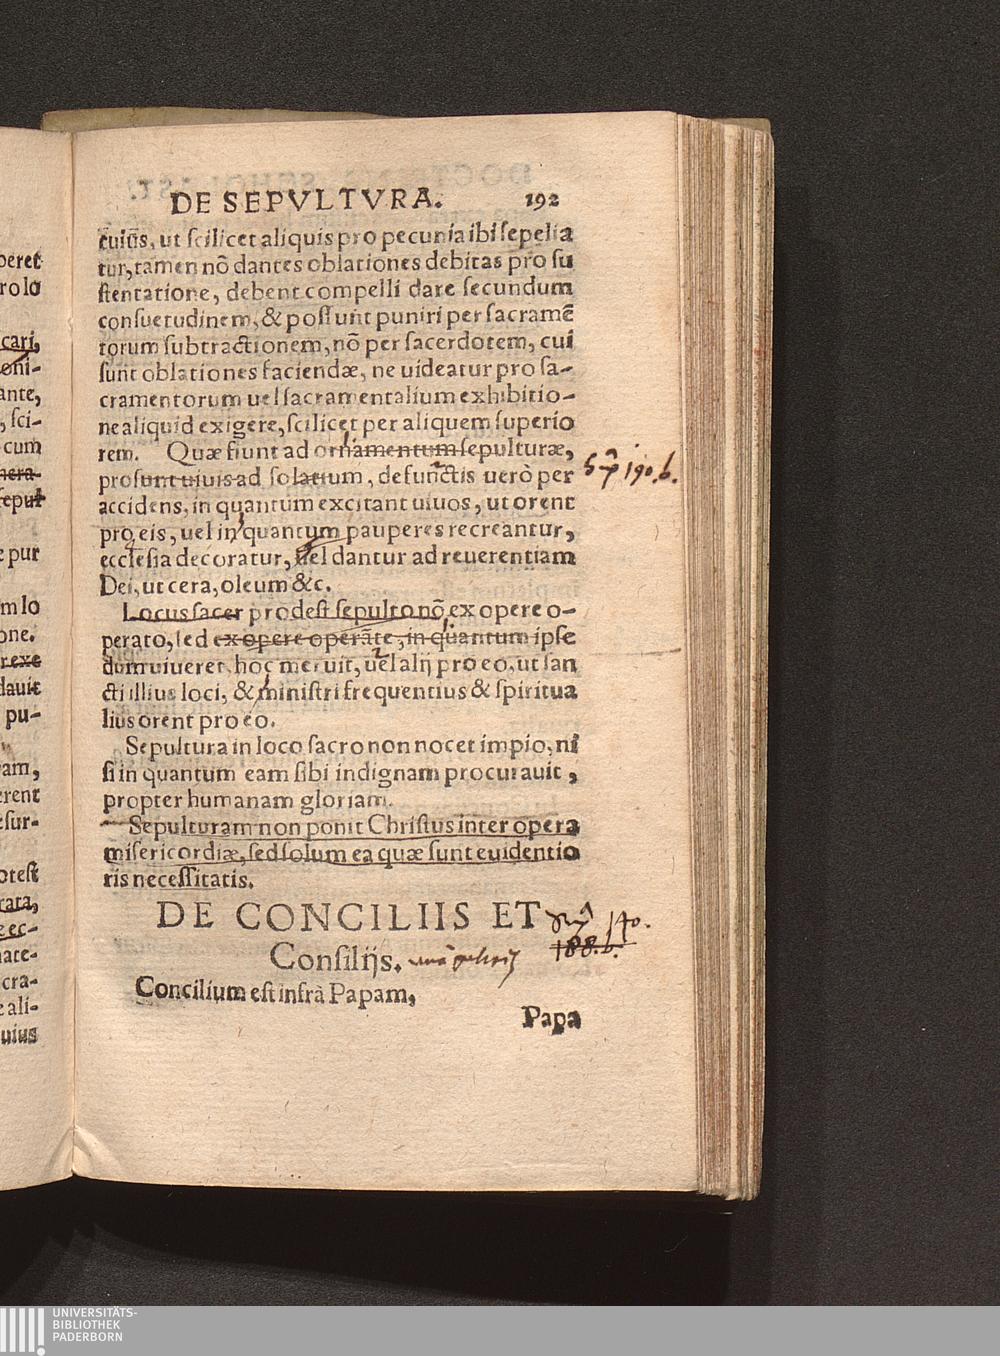 DE SEPVLTVRA. 192
cuiūs, ut scilicet aliquis pro pecunia ibi sepelia
tur, tamen nō dantes oblationes debitas pro su
stentatione, debent compelli dare secundum
consuetudinem, & possunt puniri per sacramē
torum subtractionem, nō per sacerdotem, cui
sunt oblationes faciendæ, ne uideatur pro sa-
cramentorum uel sacramentalium exhibitio-
ne aliquid exigere, scilicet per aliquem superio
rem. Quæ fiunt ad ornamentum sepulturæ,
prosunt uiuis ad solatium, defunctis uerò per
accidens, in quantum excitant uiuos, ut orent
pro eis, uel in quantum pauperes recreantur,
ecclesia decoratur, uel dantur ad reuerentiam
Dei, ut cera, oleum &c.
190.b.
Locus sacer prodest sepulto nō ex opere o-
perato, sed ex opere operāte, in quantum ipse
dum uiueret, hoc meruit, uel alij pro eo, ut san
cti illius loci, & ministri frequentius & spiritua
lius orent pro eo.
Sepultura in loco sacro non nocet impio, ni
si in quantum eam sibi indignam procurauit,
propter humanam gloriam.
Sepulturam non ponit Christus inter opera
misericordiæ, sed solum ea quæ sunt euidentio
ris necessitatis.
DE CONCILIIS ET
140.
188.b.
Consilijs.
Concilium est infrà Papam,
Papa
peret
ro lo
cari,
oni-
ante,
, sci-
cum
nera-
sepul
e pur
m lo
one.
r exe
dauit
pu-
am,
erent
esur-
otest
rata,
e ec-
nate-
cra-
e ali-
uius
UNIVERSITÄTS-
BIBLIOTHEK
PADERBORN